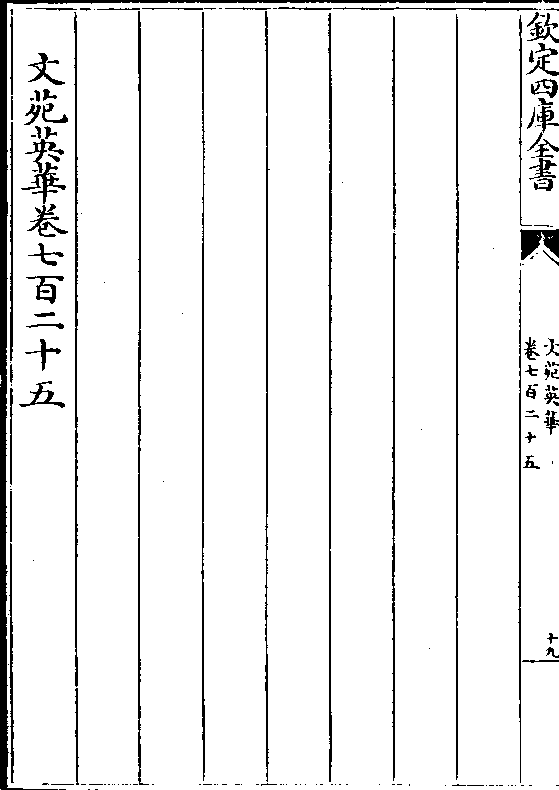 欽定四庫全書
文苑英華
卷七百二十五
十九
文苑英華卷七百二十五